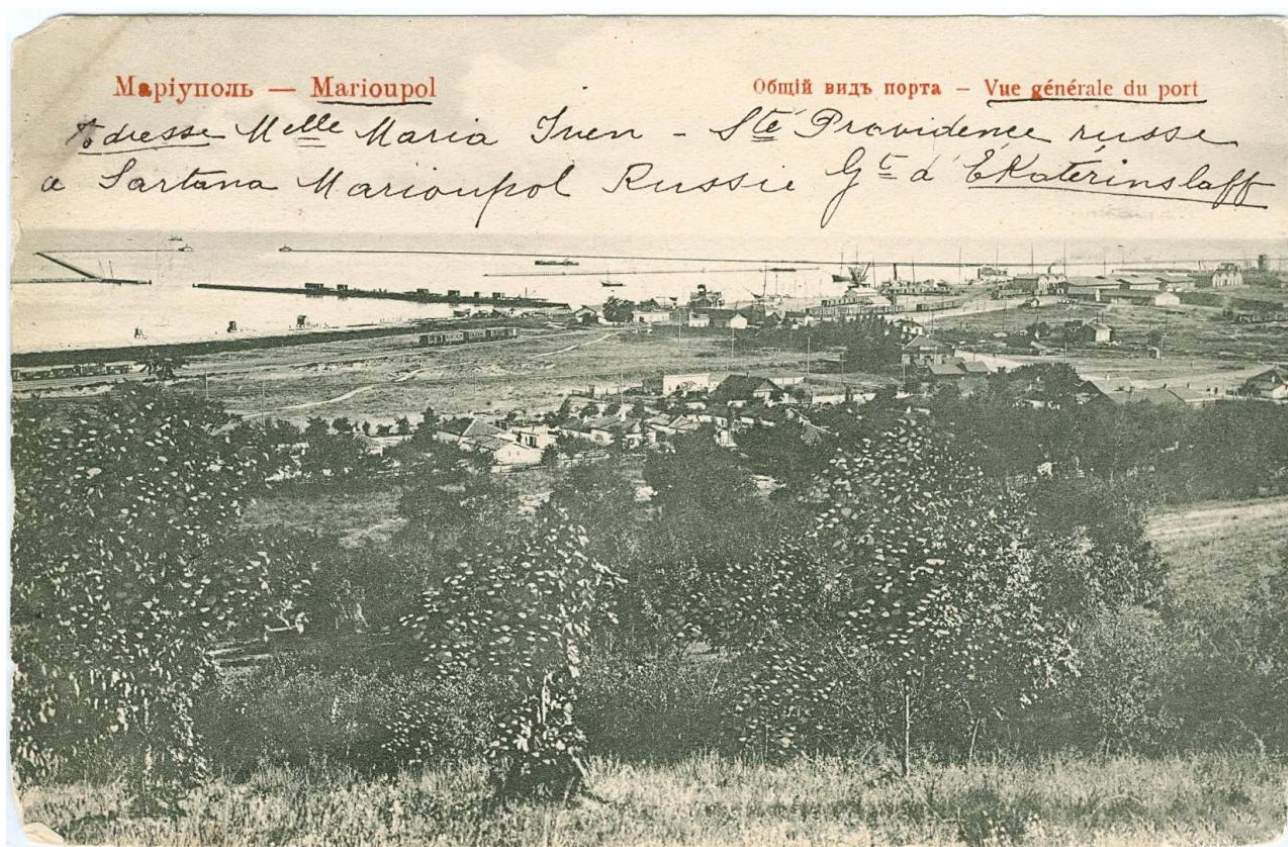 Маріуполь — Marioupol
Общій видъ порта – Vue générale du port
Adresse Melle Maria Iven - Sté Providence russe
a Sartana Marioupol Russie Gt d'Ekatérinslaff